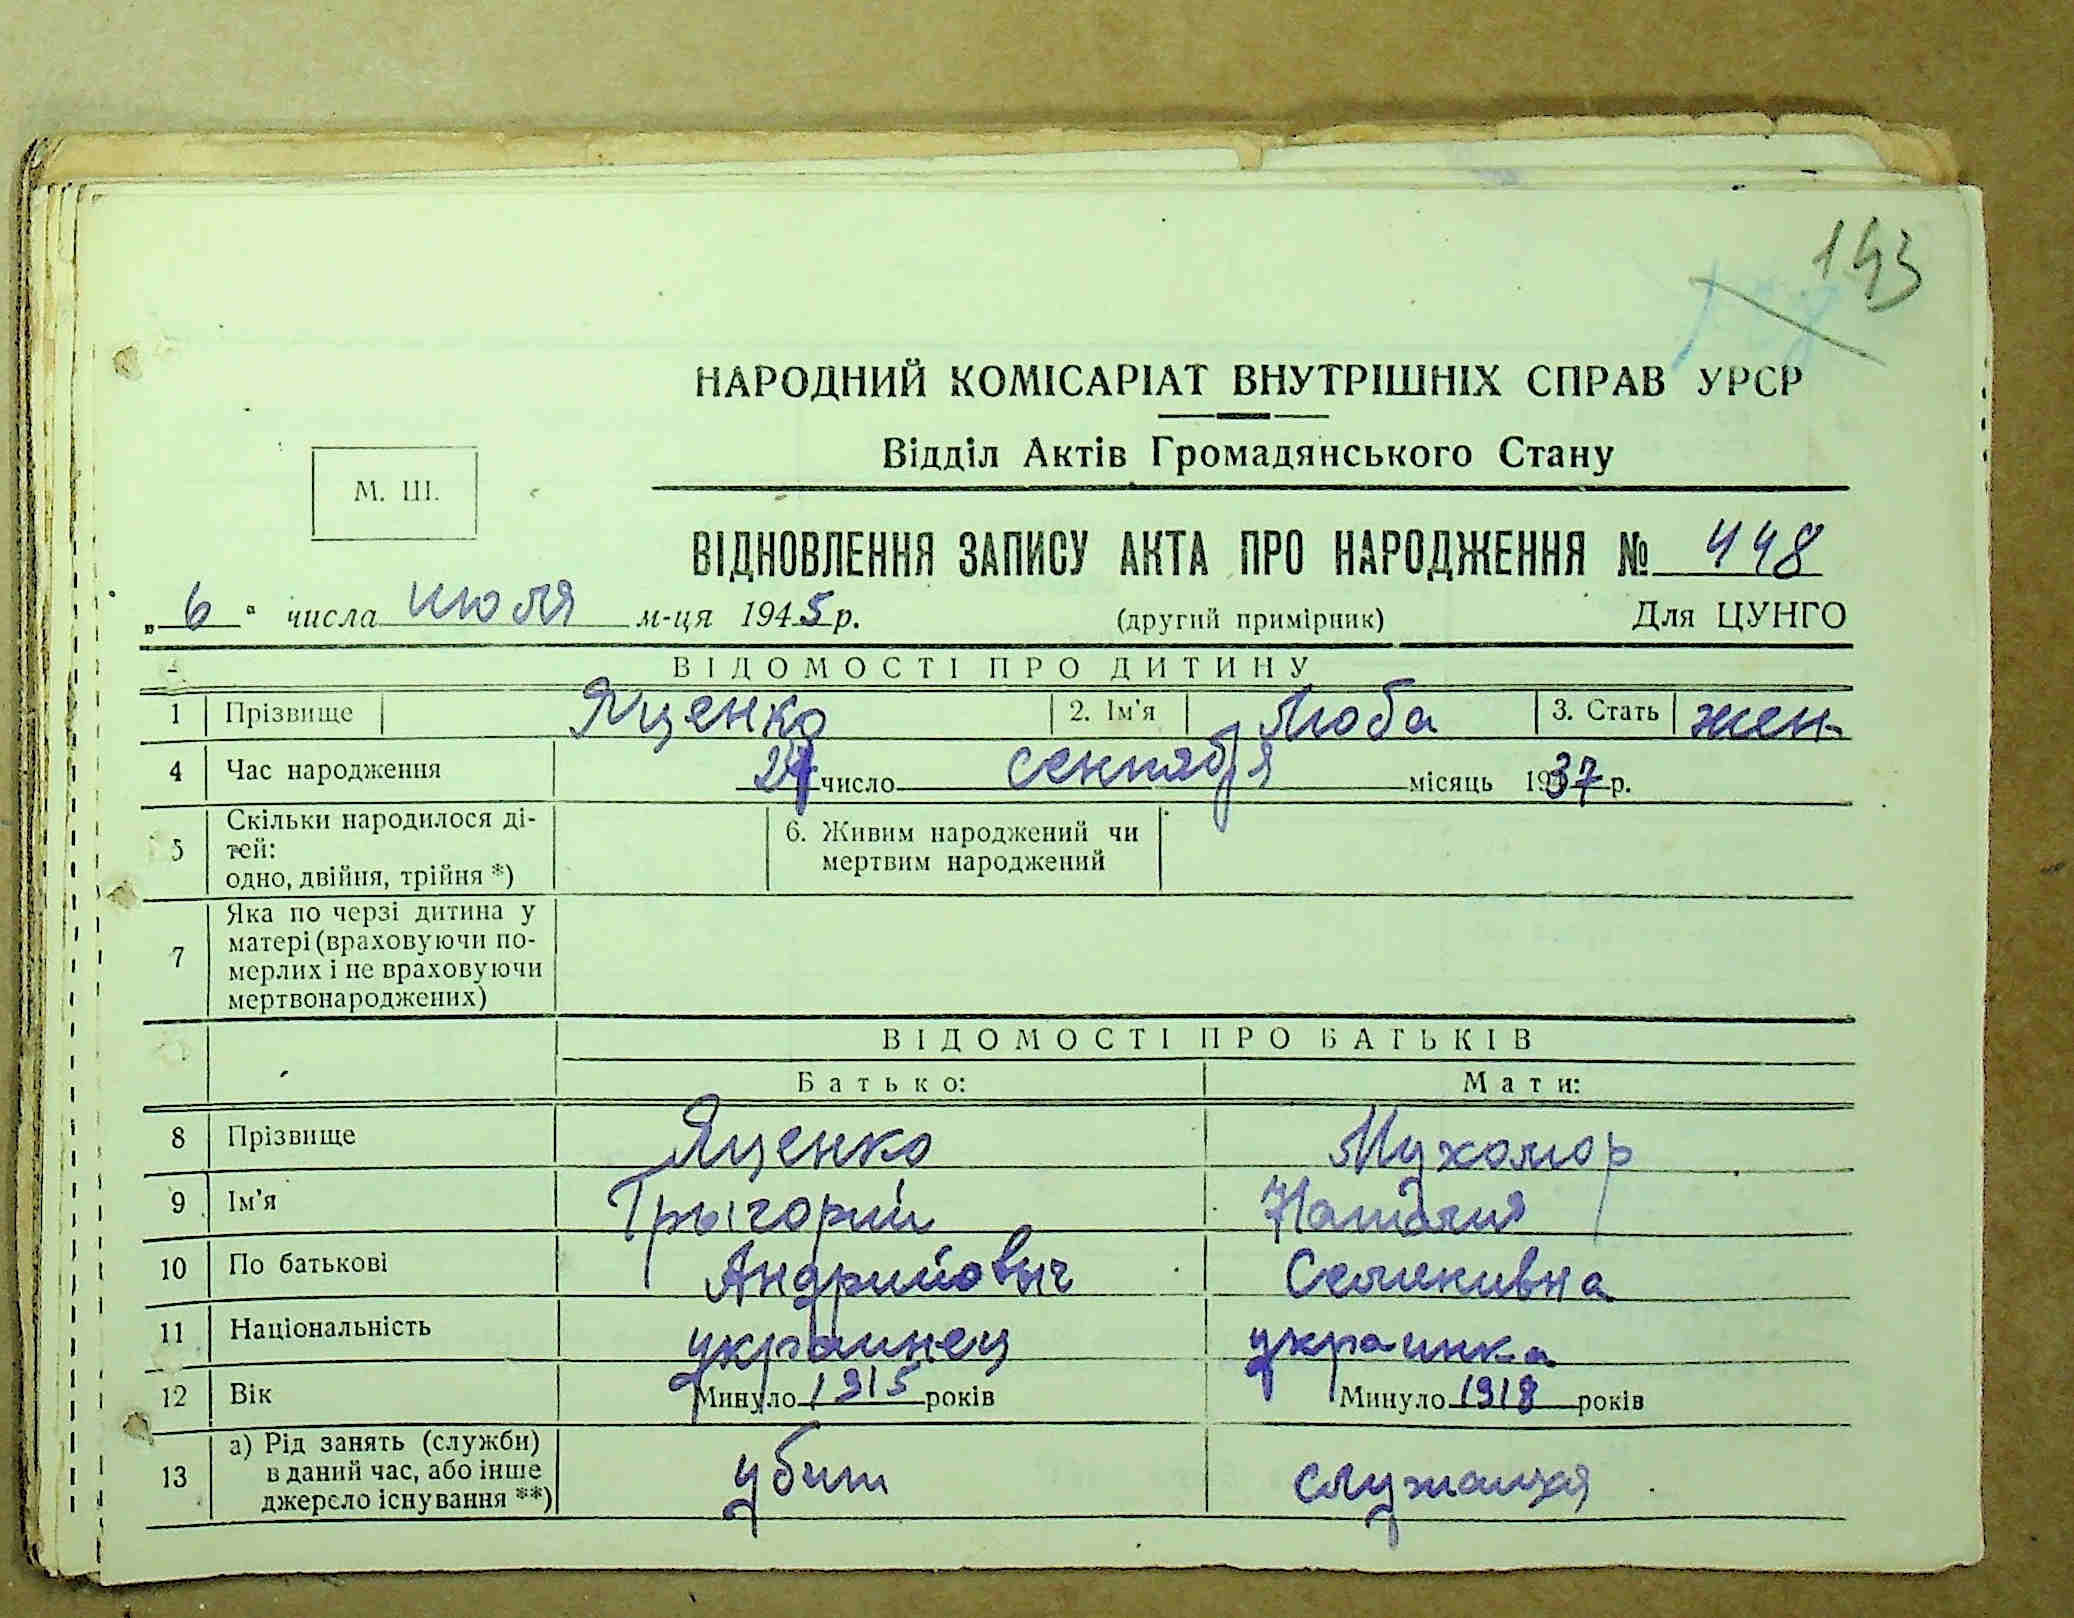 143
НАРОДНИЙ КОМІСАРІАТ ВНУТРІШНІХ СПРАВ УРСР
Відділ Актів Громадянського Стану
М. Ш.
ВІДНОВЛЕННЯ ЗАПИСУ АКТА ПРО НАРОДЖЕННЯ № 448
„6“ числа июля м-ця 1945 р. (другий примірник) Для ЦУНГО
ВІДОМОСТІ ПРО ДИТИНУ
1 Прізвище Яценко 2. Ім'я Люба 3. Стать жен.
4 Час народження 27 число сентября місяць 1937 р.
5 Скільки народилося ді-
тей:
одно, двійня, трійня *)
6. Живим народжений чи
мертвим народжений
7 Яка по черзі дитина у
матері (враховуючи по-
мерлих і не враховуючи
мертвонароджених)
ВІДОМОСТІ ПРО БАТЬКІВ
Батько: Мати:
8 Прізвище Яценко Мухомор
9 Ім'я Грыгорий Наталия
10 По батькові Андрийовыч
11 Національність украинец украинка
12 Вік Минуло 1915 років Минуло 1918 років
13 а) Рід занять (служби)
в даний час, або інше
джерело існування **)
убит служащая